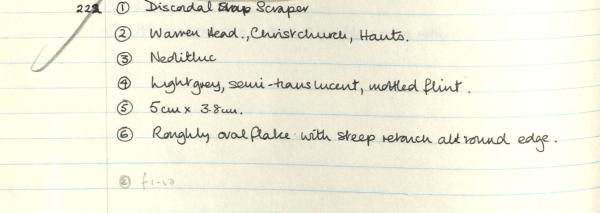 222 ① Discoidal Scraper
② Warren Head., Christchurch, Hants.
③ Neolithic
④ Light grey, semi-translucent, mottled flint.
⑤ 5cm x 3.8cm.
⑥ Roughly oval flake with steep retouch all round edge.
⑧ £1-50